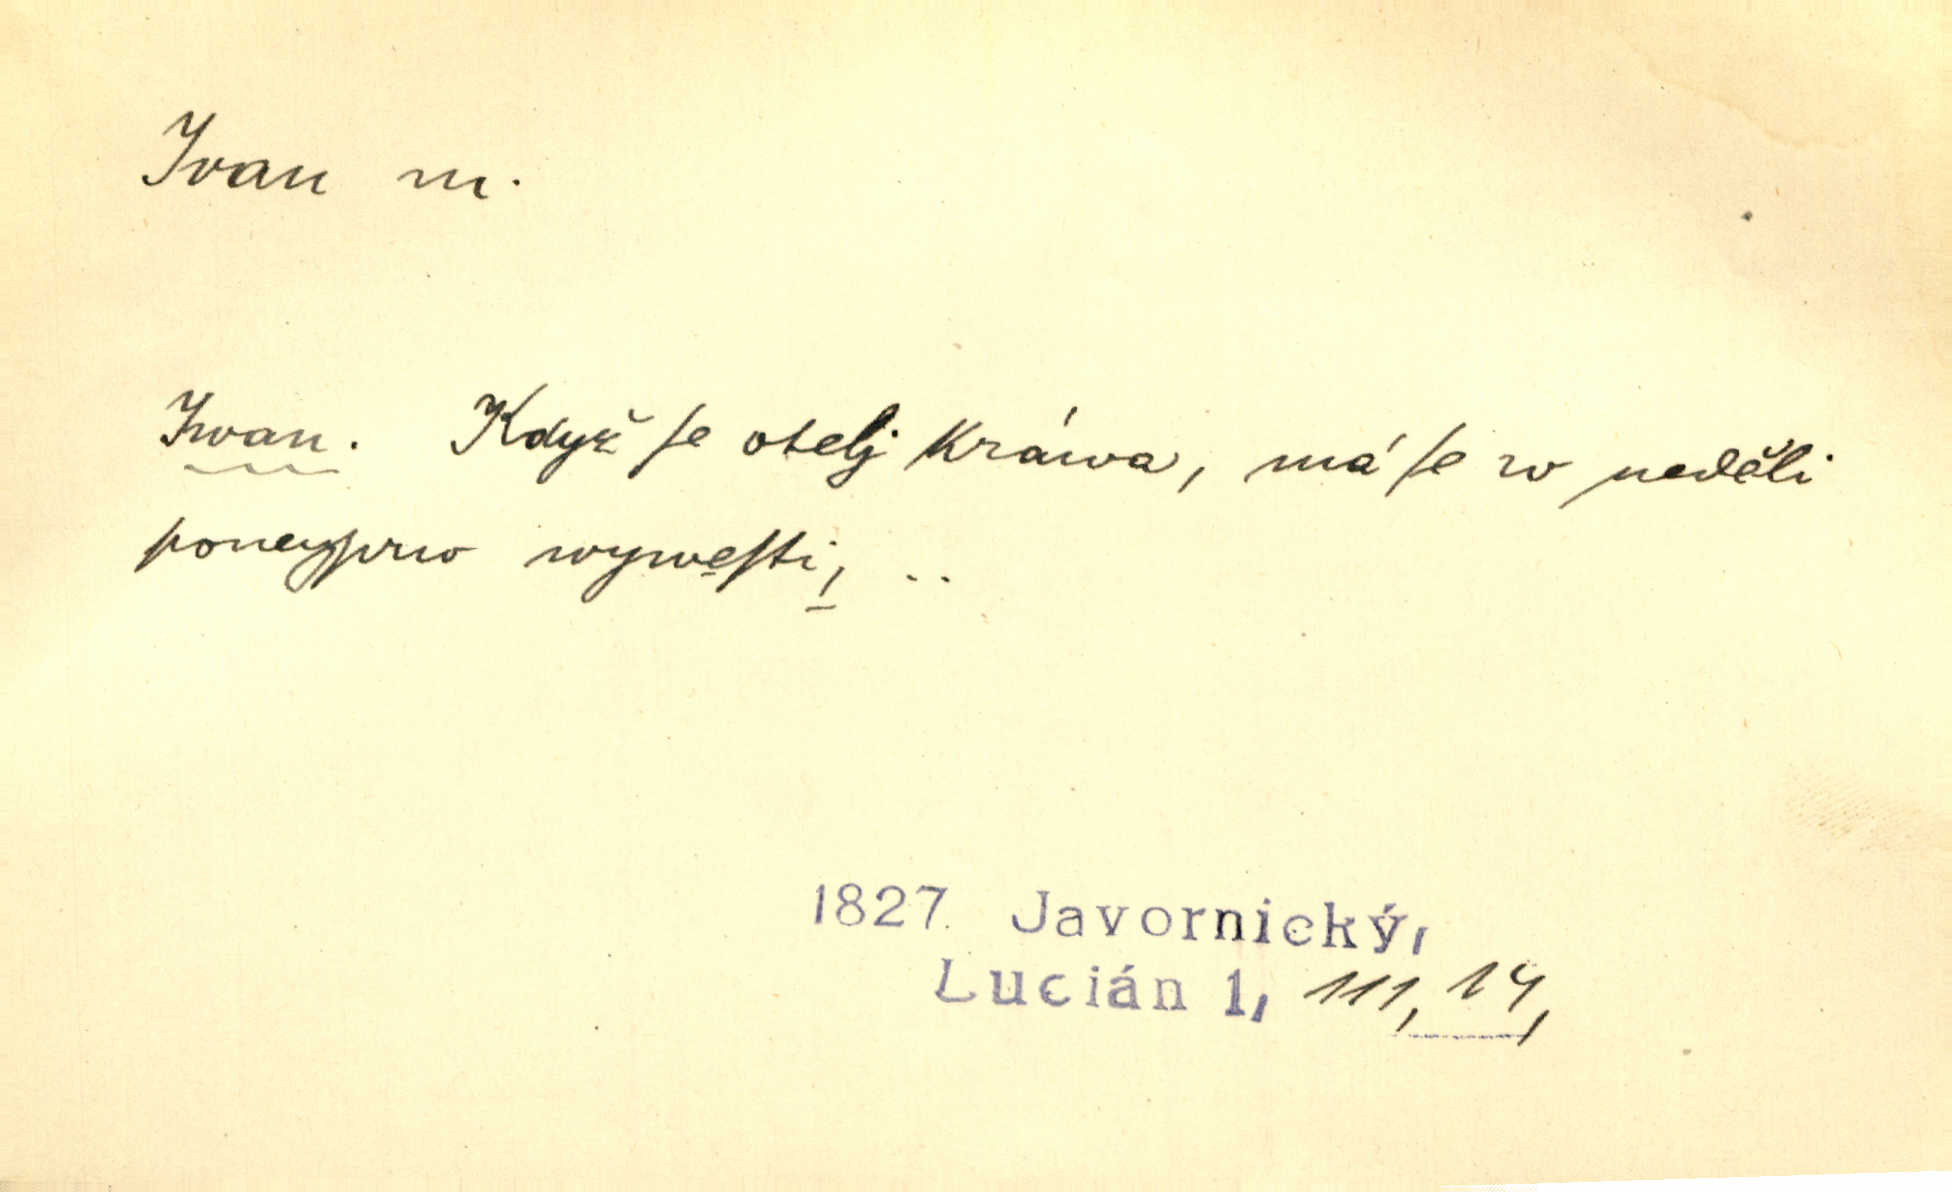 Ivan m.
Iwan. Když ſe otelj Kráwa, má ſe w neděli
poneyprw wyweſti, ..
1827 Javornický,
Lucián 1, 111, 14,